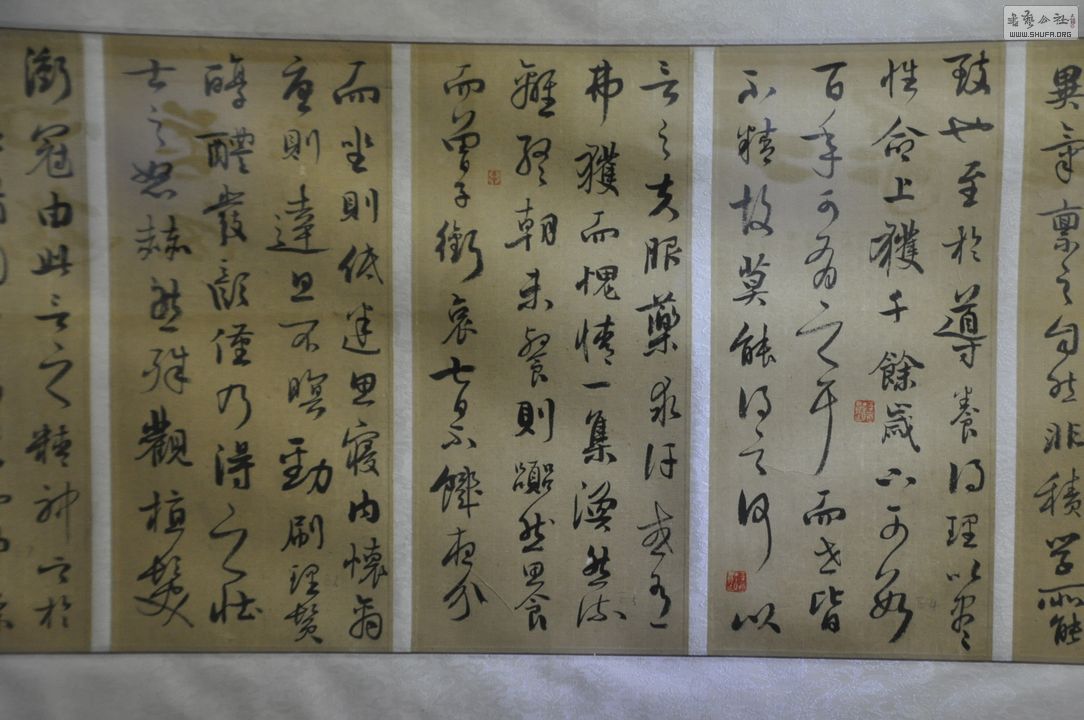 異氣稟之自然非積學所能
致也至於導養得理以盡
性命上獲千餘歲下可數
百年可有之耳而世皆
不精故莫能得之何以
言之夫服藥求汗或有
弗獲而愧情一集渙然流
離終朝未餐則囂然思食
而曾子銜哀七日不饑夜分
而坐則低迷思寢內懷殷
憂則達旦不瞑勁刷理鬢
醇醴發顏僅乃得之壯
士之怒赫然殊觀植髮
衝冠由此言之精神之於
書藝公社
WWW.SHUFA.ORG